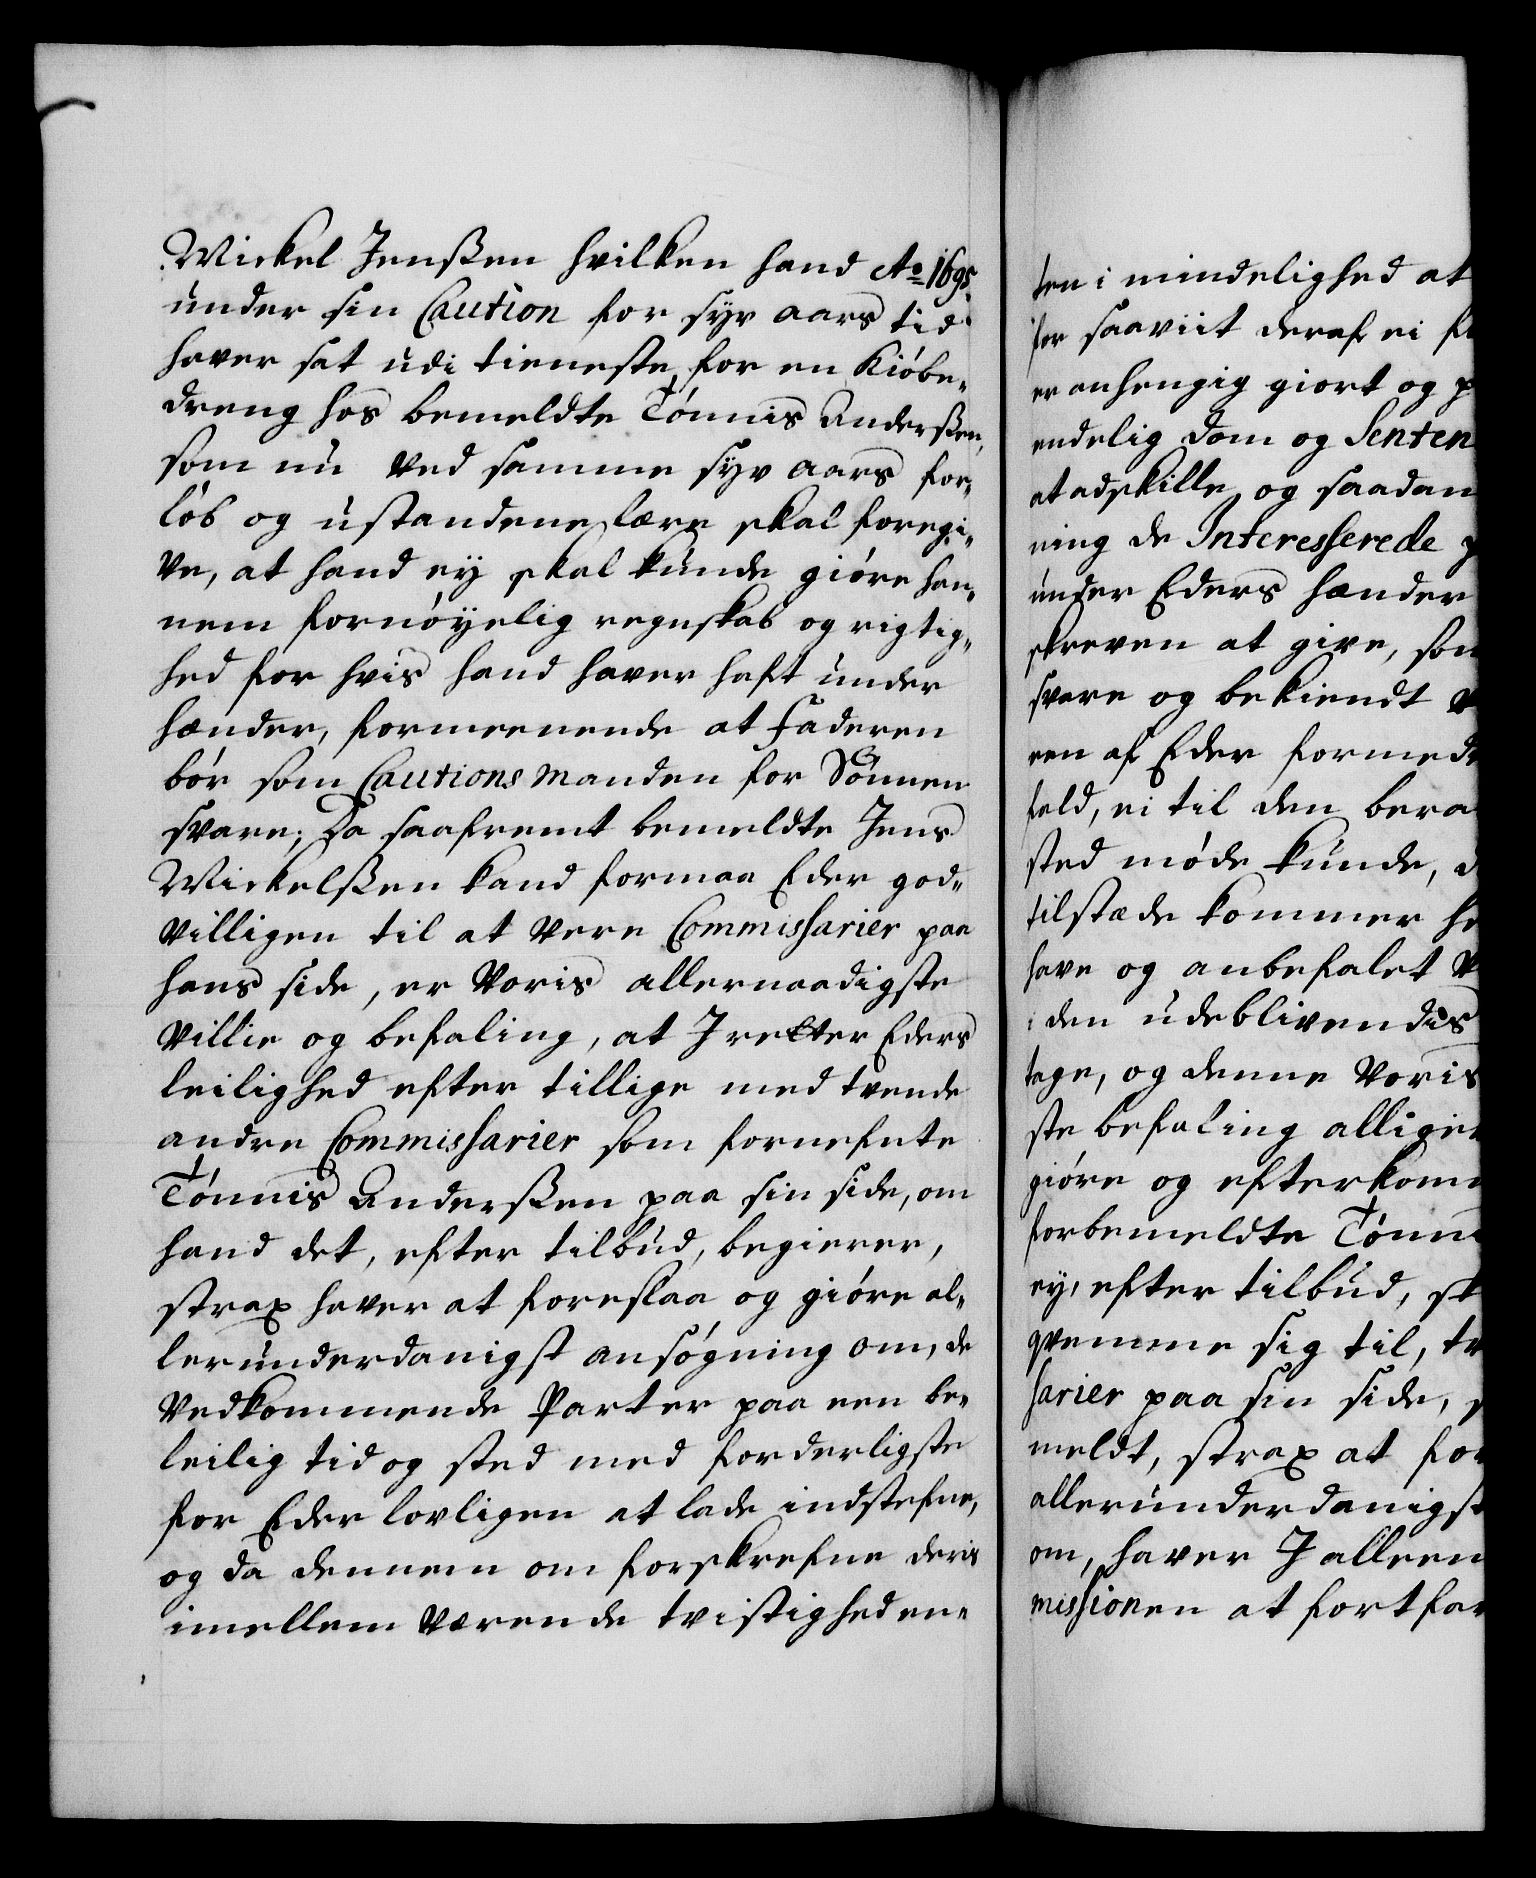 Wickel Jenßen hvilken hand Ao 1695.
under sin Caution for syv aars tid
haver sat udi tieneste for en Kiöbe„
dreng hos bemeldte Tönnis Anderßen,
som nu ved samme syv aars for„
löb og udstandene lære skal foregi„
ve, at hand ey skal kunde giöre han„
nem fornöyelig regnskab og rigtig„
hed for hvis hand haver haft under
hænder, formeenende at faderen
bör som Cautions manden for Sönnen
svare; Da saafremt bemeldte Jens
Wickelßen kand formaa Eder god„
villigen til at vere Commissarier paa
hans side, er Voris allernaadigste
villie og befaling, at I retter Eders
leilighed efter tillige med tvende
andre Commissarier som fornefnte
Tönnis Anderßen paa sin side, om
hand det, efter tilbud, begierer,
strax haver at foreslaa og giöre al„
lerunderdanigst ansögning om, de
vedkommende Parter paa een be„
leilig tid og sted med forderligste
for Eder lovligen at lade indstefne,
og da dennem om forskrefne deris
imellem værende tvistigheden„
ten i mindelighed at
for saaviit deraf ei
er anhengig giort og
endelig dom og Senten
at adskille og saadan
ning de Interesserede
under Eders hænder
skreven at give, som
svare og bekiendt
een af Eder formed
fald, ei til den bera
sted möde kunde,
tilstæde kommer
have og anbefalet
den udeblivendis
tage, og denne Voris
ste befaling allige
giöre og efterkom
forbemeldte Tönn
ey, efter tilbud, st
qvemme sig til, tv
sarier paa sin side,
meldt, strax at for
allerunderdanigst
om, haver I alleen
missionen at fortfar